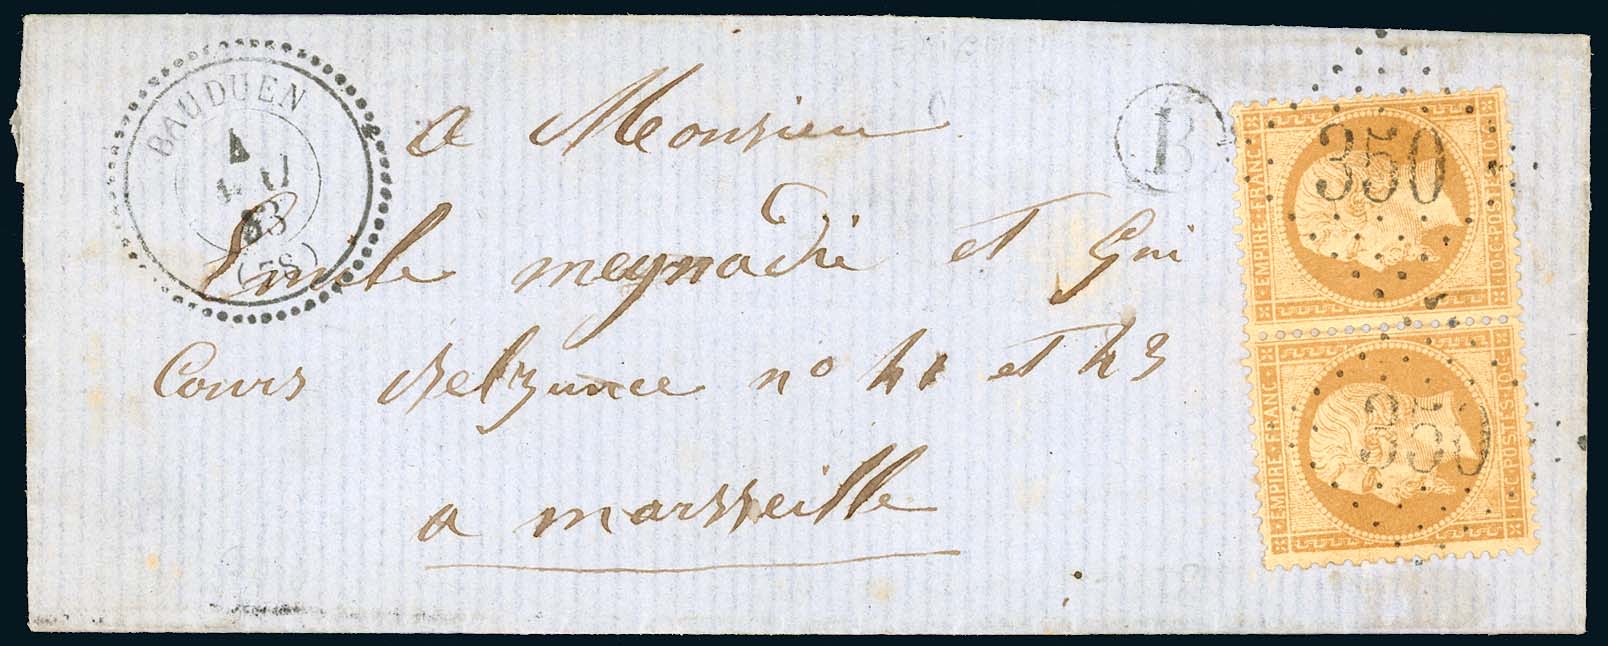 BAUDUEN
4
63
(78)
a Monsieur
B
Emile meynadié et Gui
Cours Belzunce n° 41 et 43
a marsseille
350
EMPIRE·FRANC
10·C·POSTES·10·C
350
EMPIRE·FRANC
10·C·POSTES·10·C